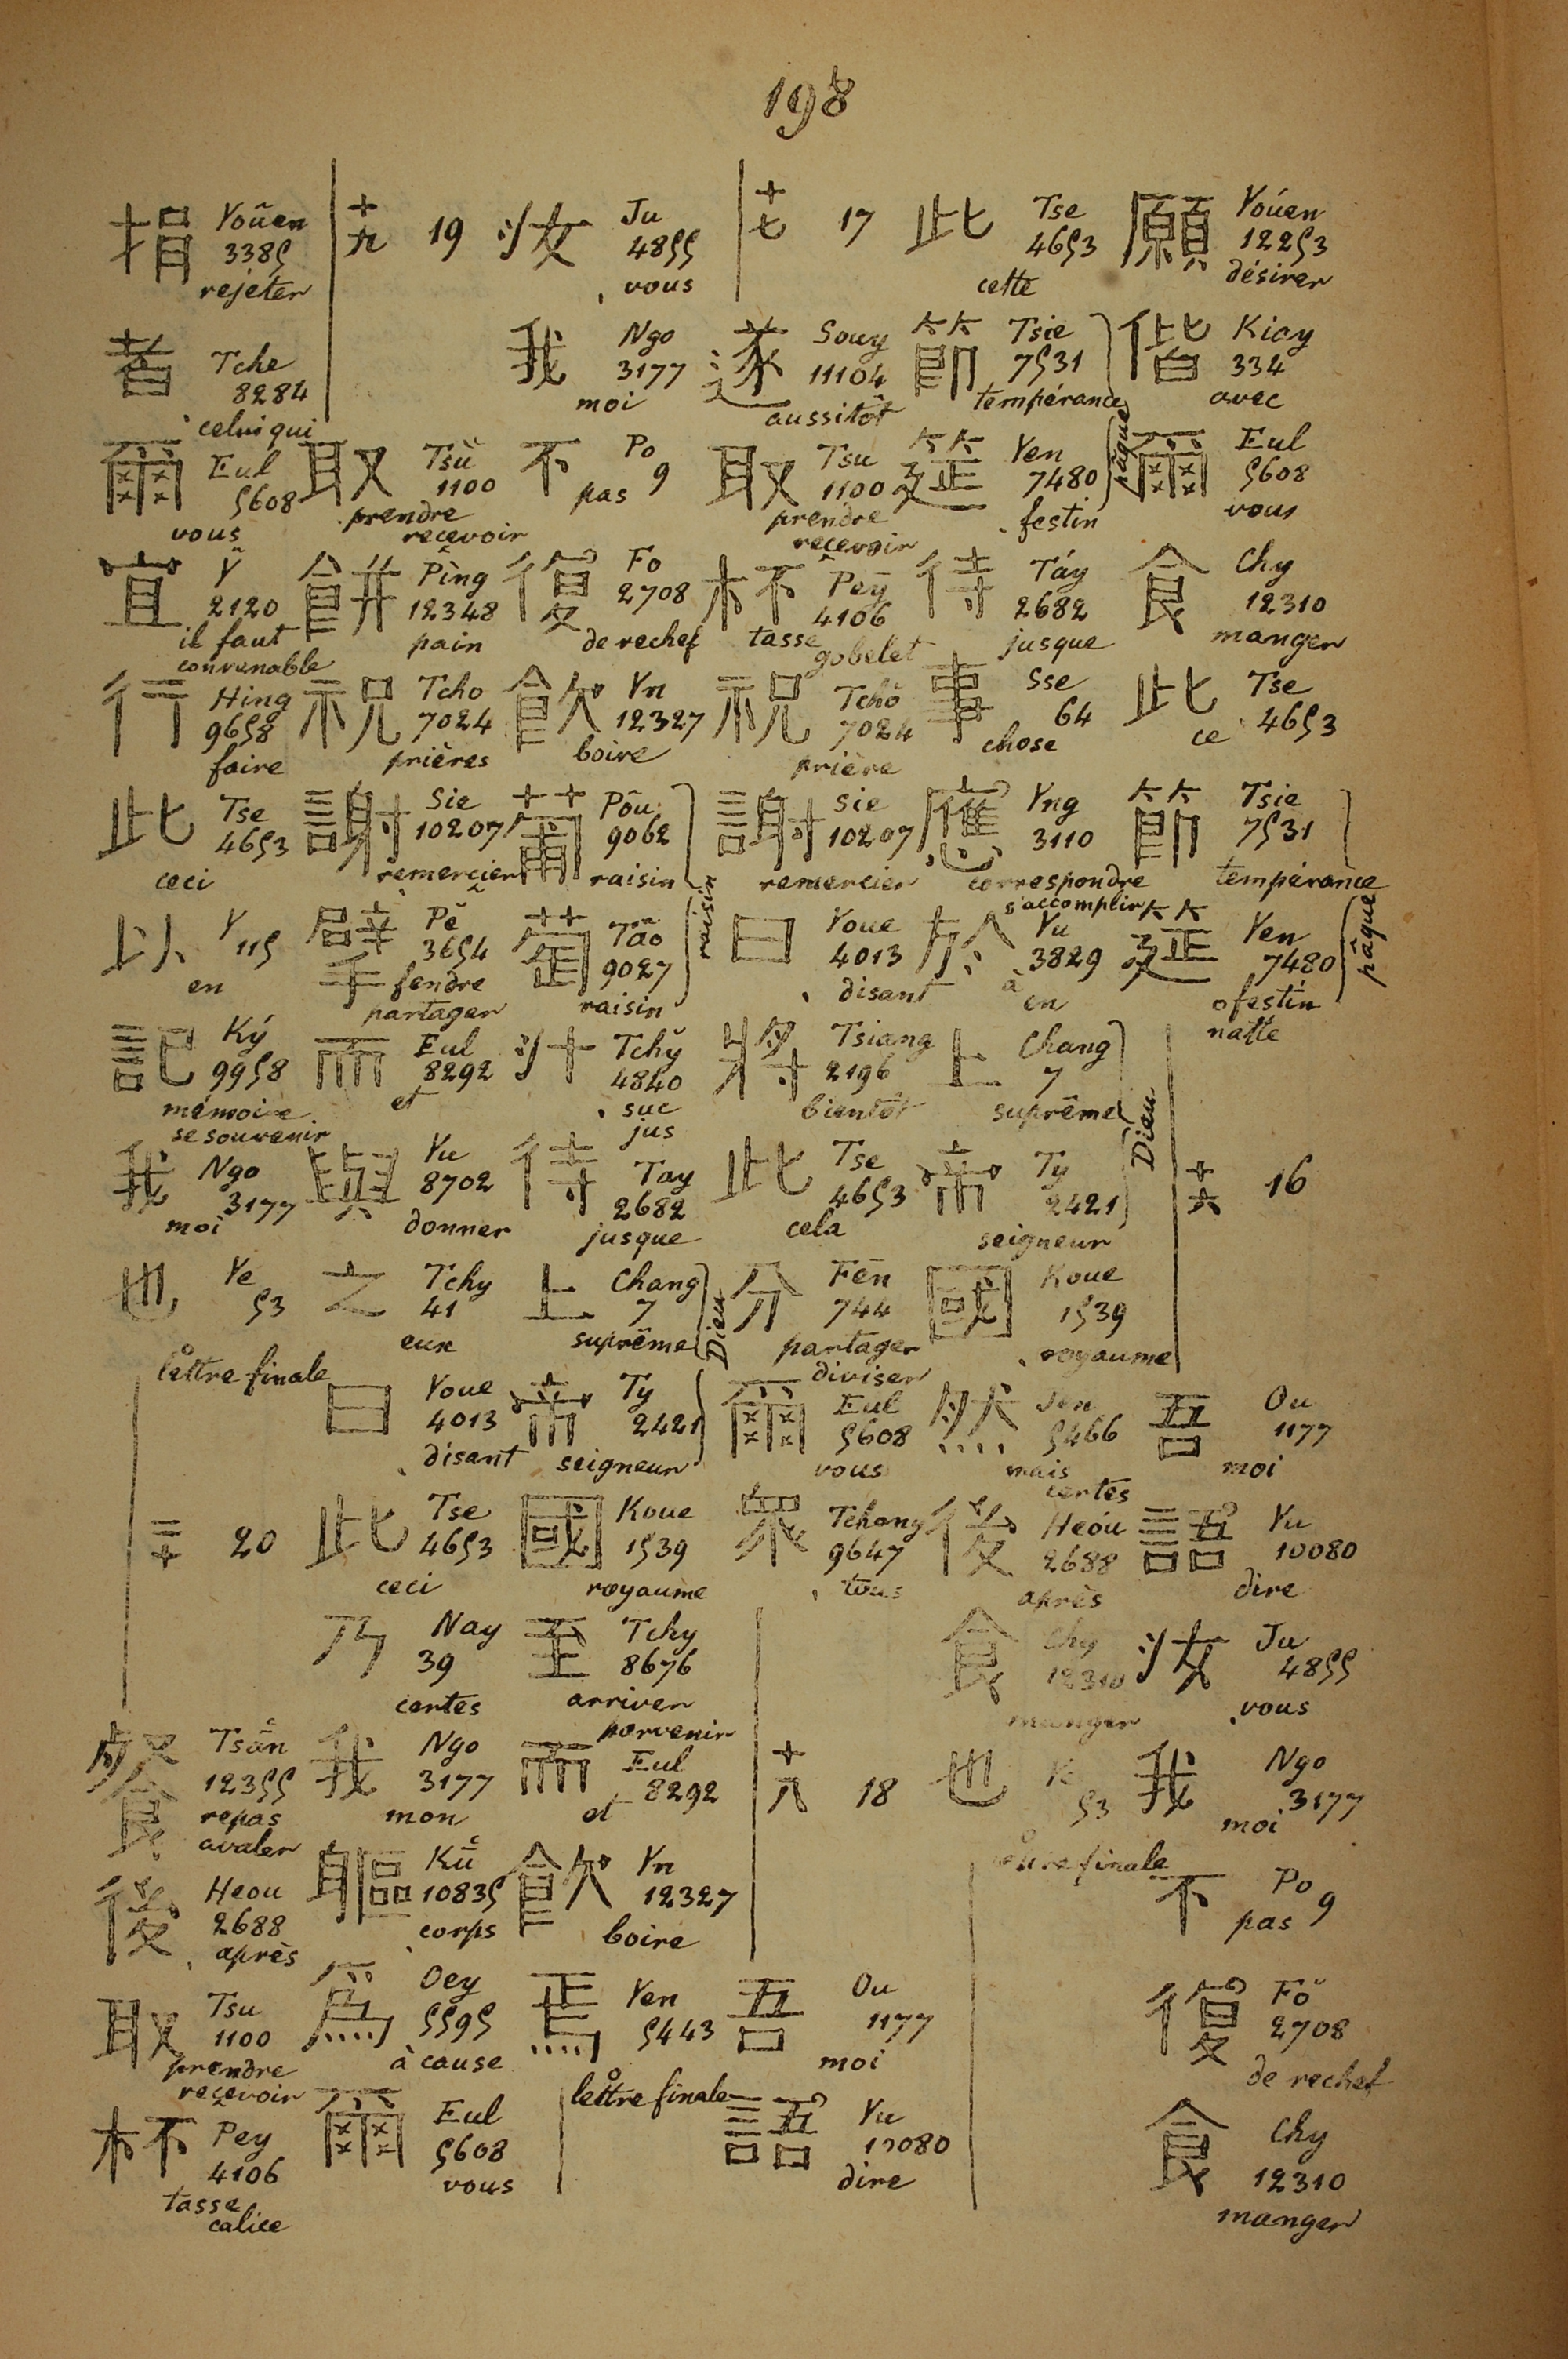 198
願 Yoúen 12253 désirer
偕 Kiay 334 avec
爾 Eul 5608 vous
食 Chy 12310 manger
此 Tse 4653 ce
節 Tsie 7531 tempérance
筵 Yen 7480 festin natte
pâque
十六 16
吾 Ou 1177 moi
語 Yu 10080 dire
汝 Ju 4855 vous
我 Ngo 3177 moi
不 Po 9 pas
復 Fŏ 2708 de rechef
食 Chy 12310 manger
此 Tse 4653 cette
節 Tsie 7531 tempérance
筵 Yen 7480 festin
pâque
待 Táy 2682 jusque
事 Sse 64 chose
應 Yng 3110 correspondre s'accomplir
於 Yu 3829 à en
上 Chang 7 suprême
帝 Ty 2421 seigneur
Dieu
國 Koue 1539 royaume
然 Jen 5466 mais certes
後 Heóu 2688 après
食 Chy 12310 manger
也 Ye 53 lettre finale
十七 17
遂 Souy 11104 aussitôt
取 Tsu 1100 prendre recevoir
杯 Pey 4106 tasse gobelet
祝 Tchŏ 7024 prière
謝 Sie 10207 remercier
曰 Youe 4013 disant
將 Tsiang 2196 bientôt
此 Tse 4653 cela
分 Fēn 744 partager diviser
爾 Eul 5608 vous
眾 Tchong 9647 tous
十八 18
吾 Ou 1177 moi
語 Yu 10080 dire
汝 Ju 4855 vous
我 Ngo 3177 moi
不 Po 9 pas
復 Fo 2708 de rechef
飲 Yn 12327 boire
葡 Pôu 9062 raisin
萄 Tāo 9027 raisin
raisin
汁 Tchy 4840 suc jus
待 Tay 2682 jusque
上 Chang 7 suprême
帝 Ty 2421 seigneur
Dieu
國 Koue 1539 royaume
至 Tchy 8676 arriver parvenir
而 Eul 8292 et
飲 Yn 12327 boire
焉 Yen 5443 lettre finale
十九 19
取 Tsŭ 1100 prendre recevoir
餅 Pìng 12348 pain
祝 Tcho 7024 prières
謝 Sie 10207 remercier
擘 Pĕ 3654 fendre partager
而 Eul 8292 et
與 Yu 8702 donner
之 Tchy 41 eux
曰 Youe 4013 disant
此 Tse 4653 ceci
乃 Nay 39 certes
我 Ngo 3177 mon
軀 Kū 10835 corps
為 Oey 5595 à cause
爾 Eul 5608 vous
捐 Yoûen 3385 rejeter
者 Tche 8284 celui qui
爾 Eul 5608 vous
宜 Y 2120 il faut convenable
行 Hing 9658 faire
此 Tse 4653 ceci
以 Y 115 en
記 Ký 9958 mémoire se souvenir
我 Ngo 3177 moi
也 Ye 53 lettre finale
二十 20
餐 Tsān 12355 repas avaler
後 Heou 2688 après
取 Tsu 1100 prendre recevoir
杯 Pey 4106 tasse calice